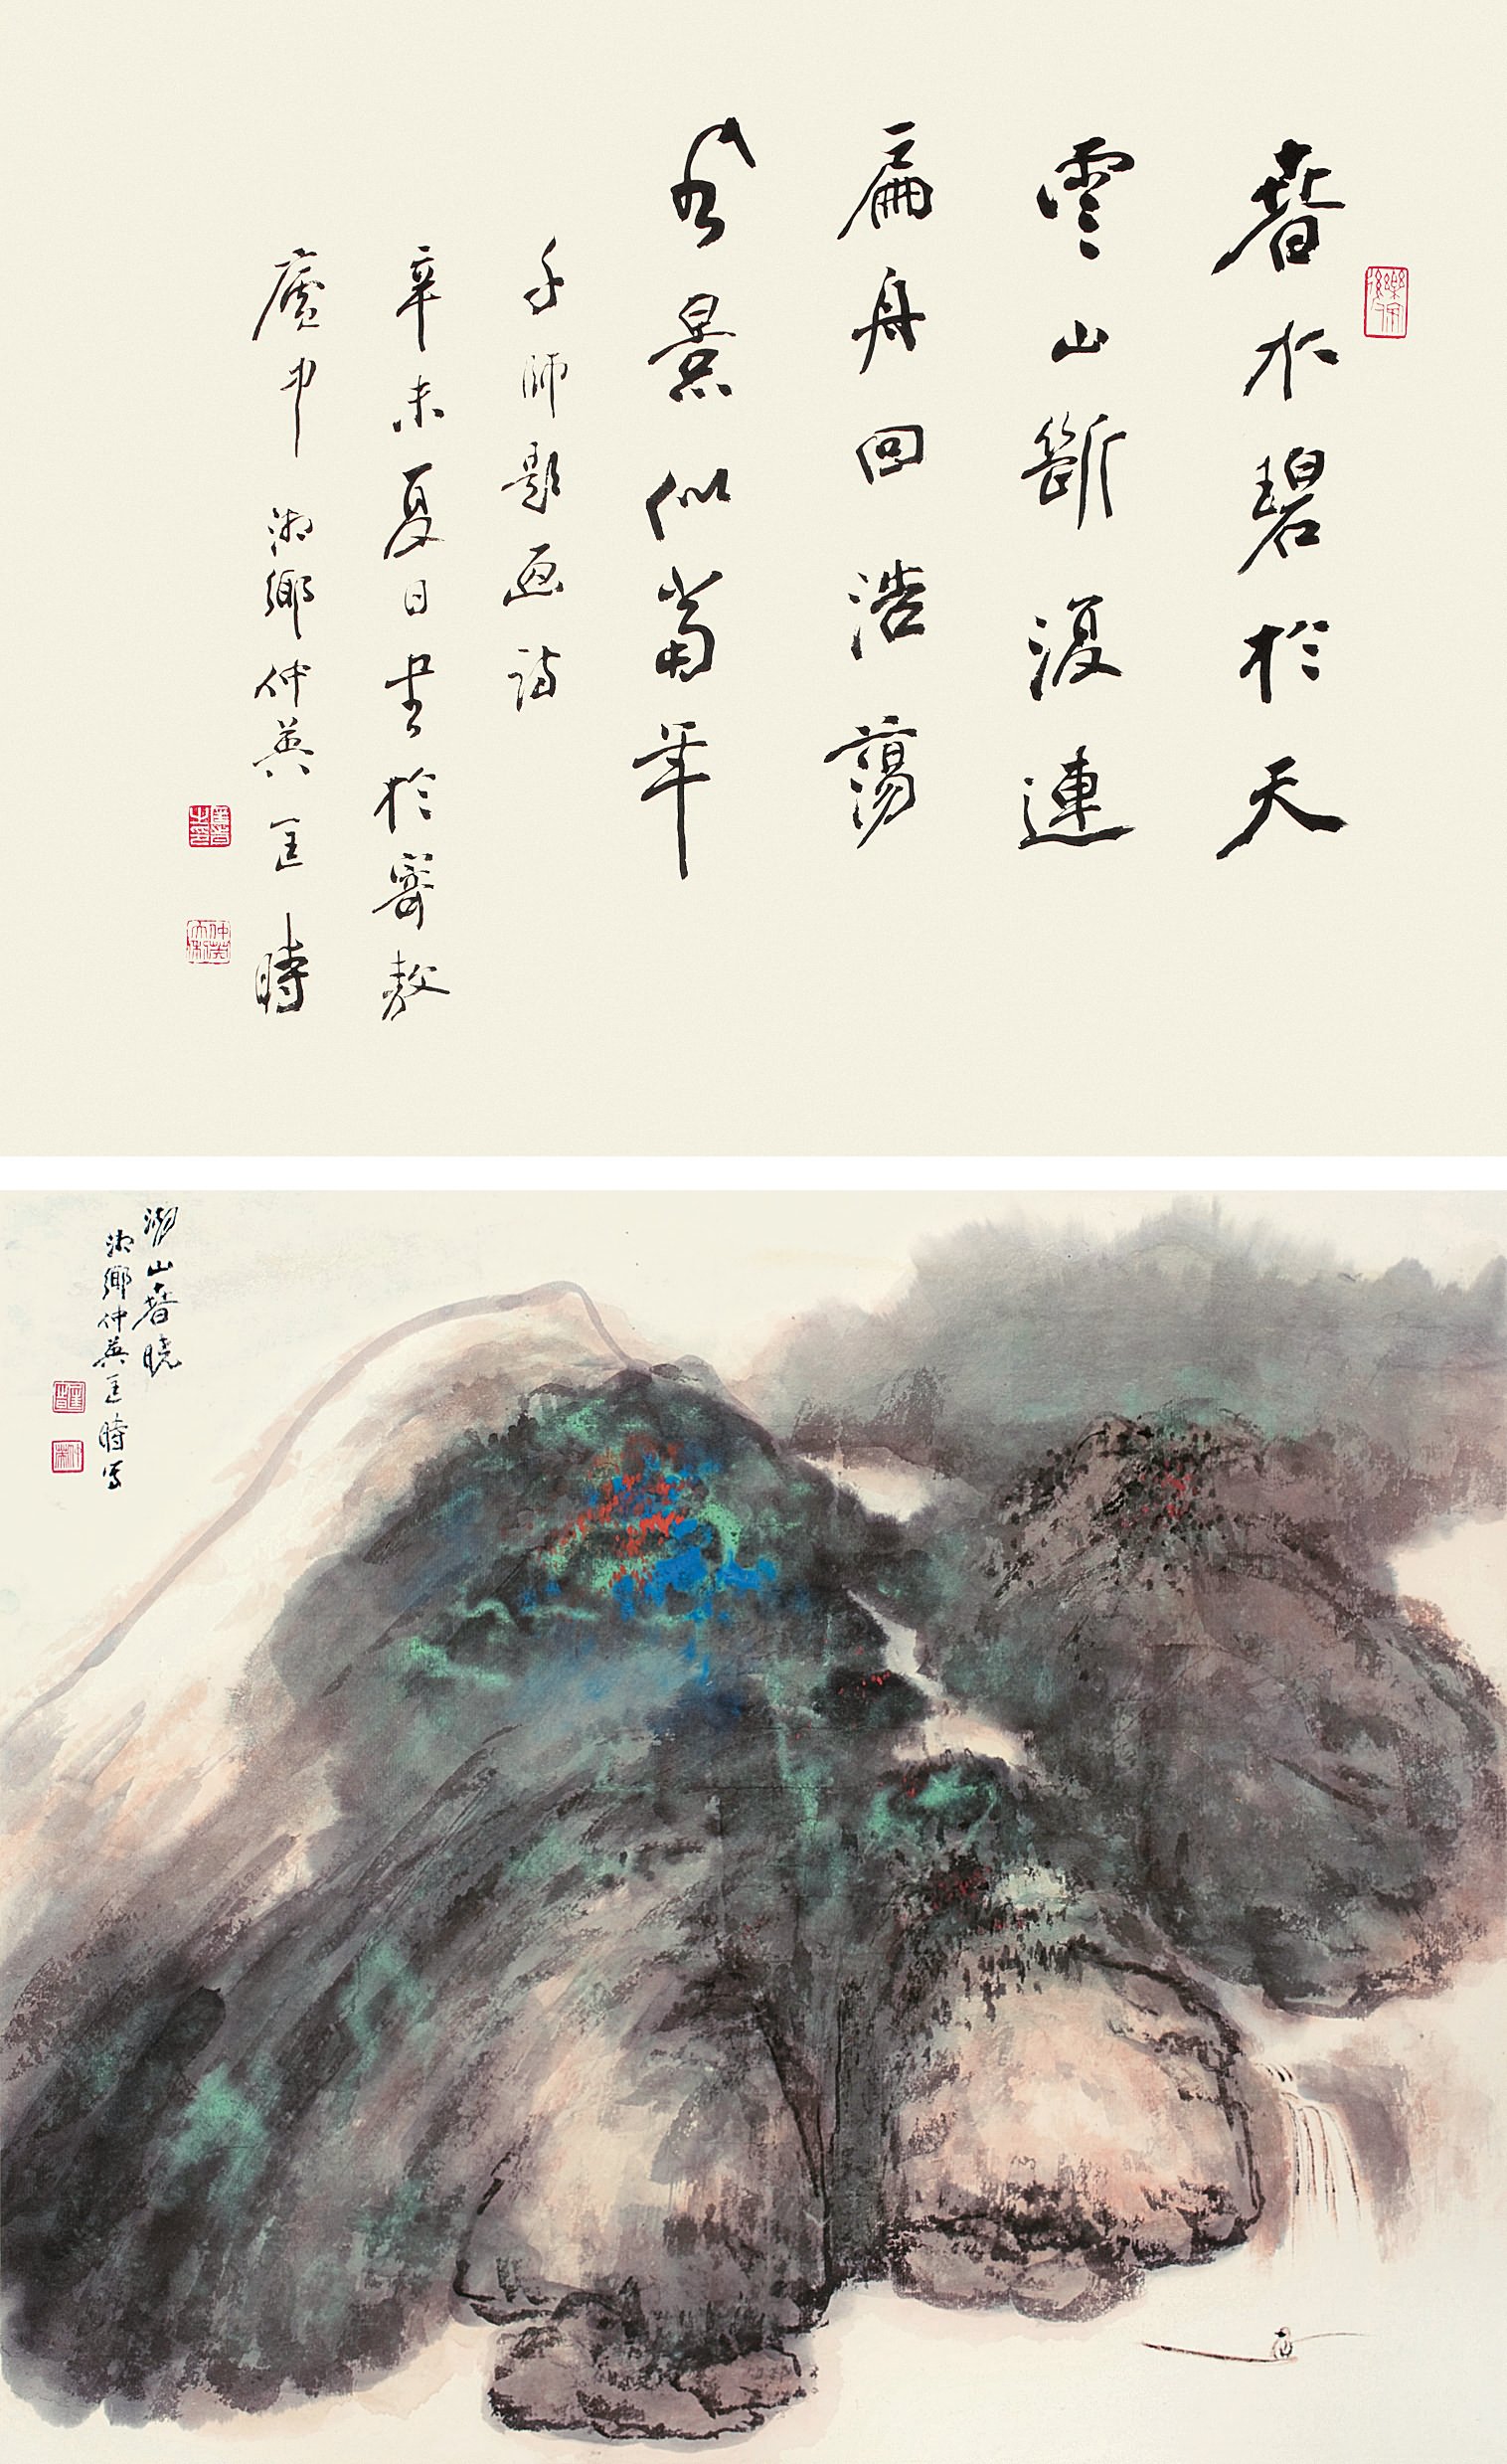 春水碧於天
雲山斷復連
扁舟回浩蕩
風景似當年
千師題画詩
辛未夏日書於寄敖
廬中 湘鄉仲英匡時
湖山春曉
湘鄉仲英匡時寫